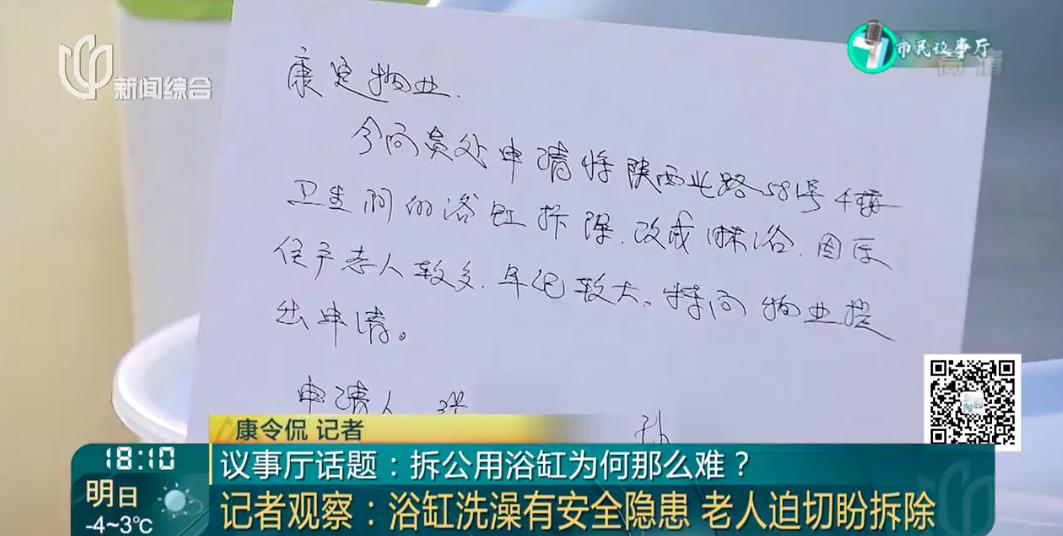 新闻综合
市民议事厅
高清
康定物业.
今向贵处申请将陕西北路581号4楼
卫生间的浴缸拆除.改成淋浴.因居
住户老人较多.年纪较大.特向物业提
出申请。
申请人 张
孙
康令侃 记者
18:10
议事厅话题：拆公用浴缸为何那么难？
明日
-4~3℃
记者观察：浴缸洗澡有安全隐患 老人迫切盼拆除